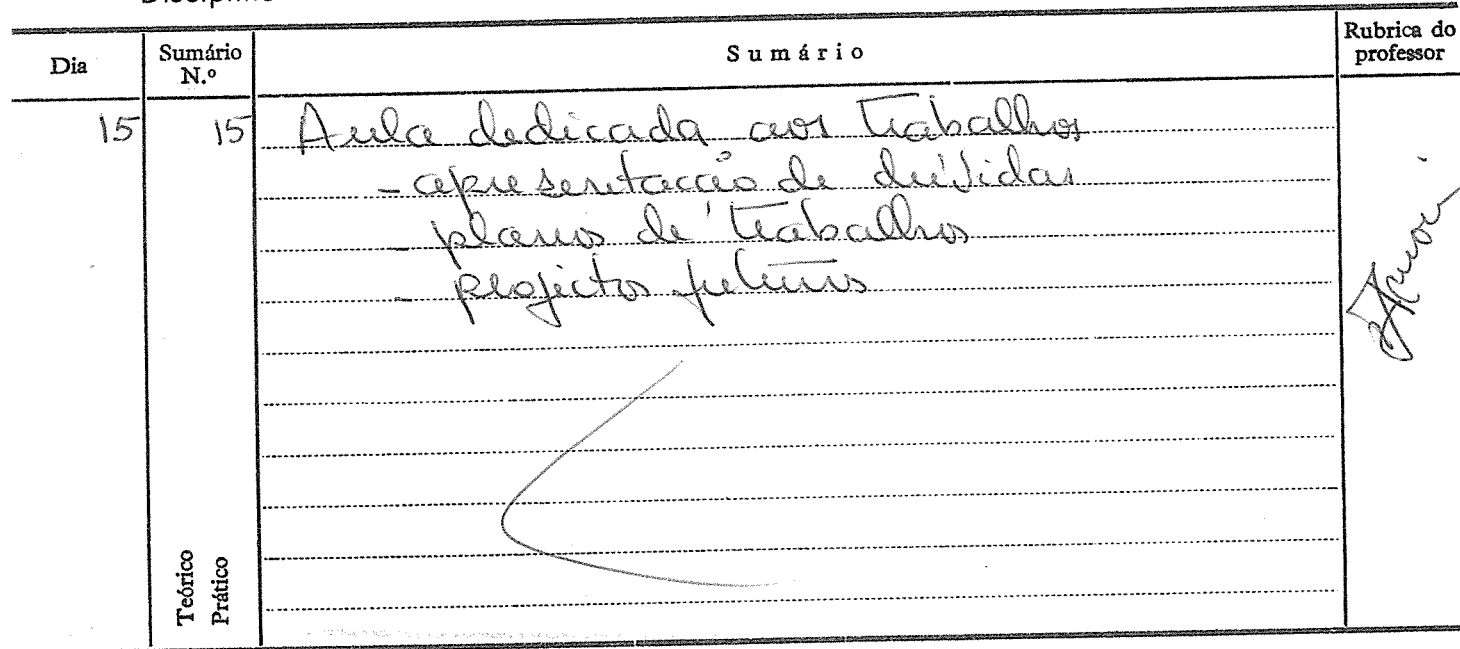 Dia Sumário N.º Sumário Rubrica do professor
15 15 Aula dedicada aos trabalhos
- apresentação de dúvidas
- planos de trabalhos
- projectos futuros
Teórico
Prático